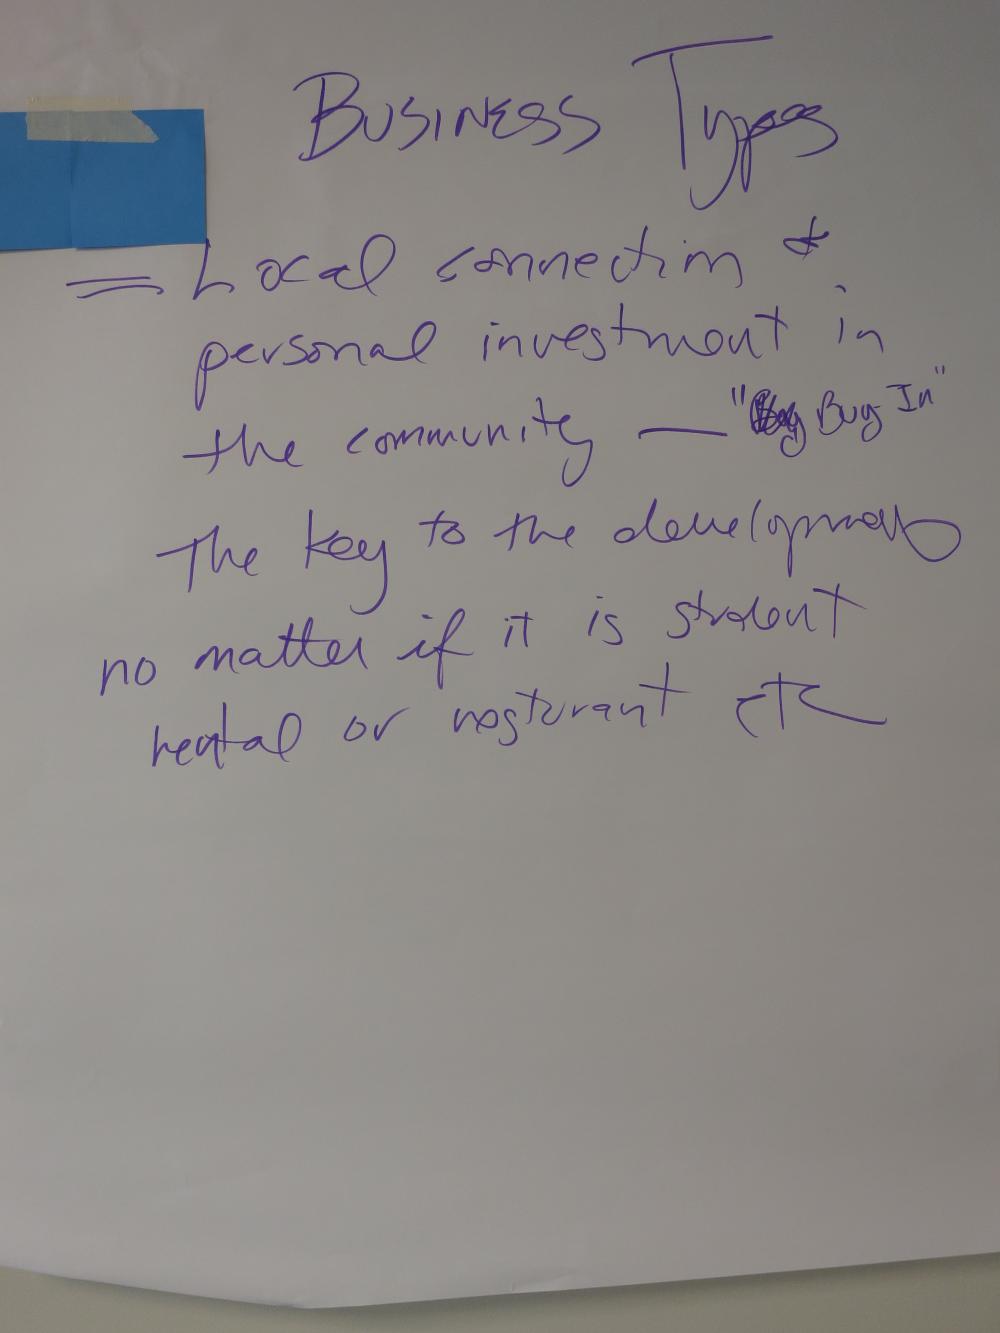 Business Types
= Local connection &
personal investment in
the community — "Buy In"
The key to the development
no matter if it is student
rental or resturant etc